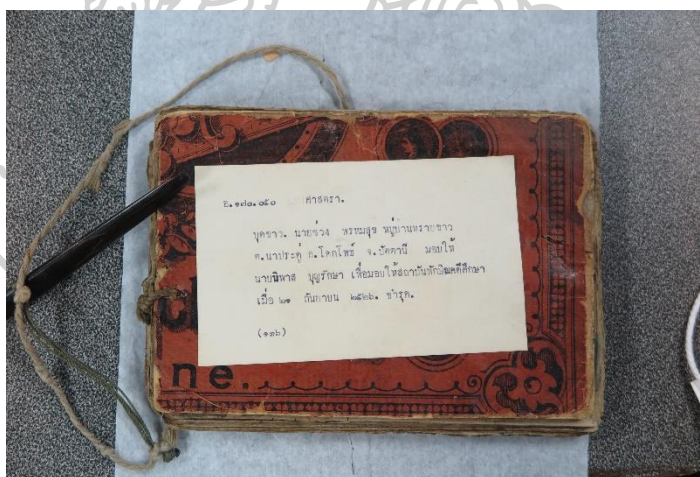 ศาสตรา.
บุดขาว. นายช่วง พรหมสุข หมู่บ้านทรายขาว
ต.นาประดู่ อ.โคกโพธิ์ จ.ปัตตานี มอบให้
นายนิพาส บุญรักษา เพื่อมอบให้สถาบันทักษิณคดีศึกษา
เมื่อ ๒๑ กันยายน ๒๕๒๒. ชำรุด.
ne.